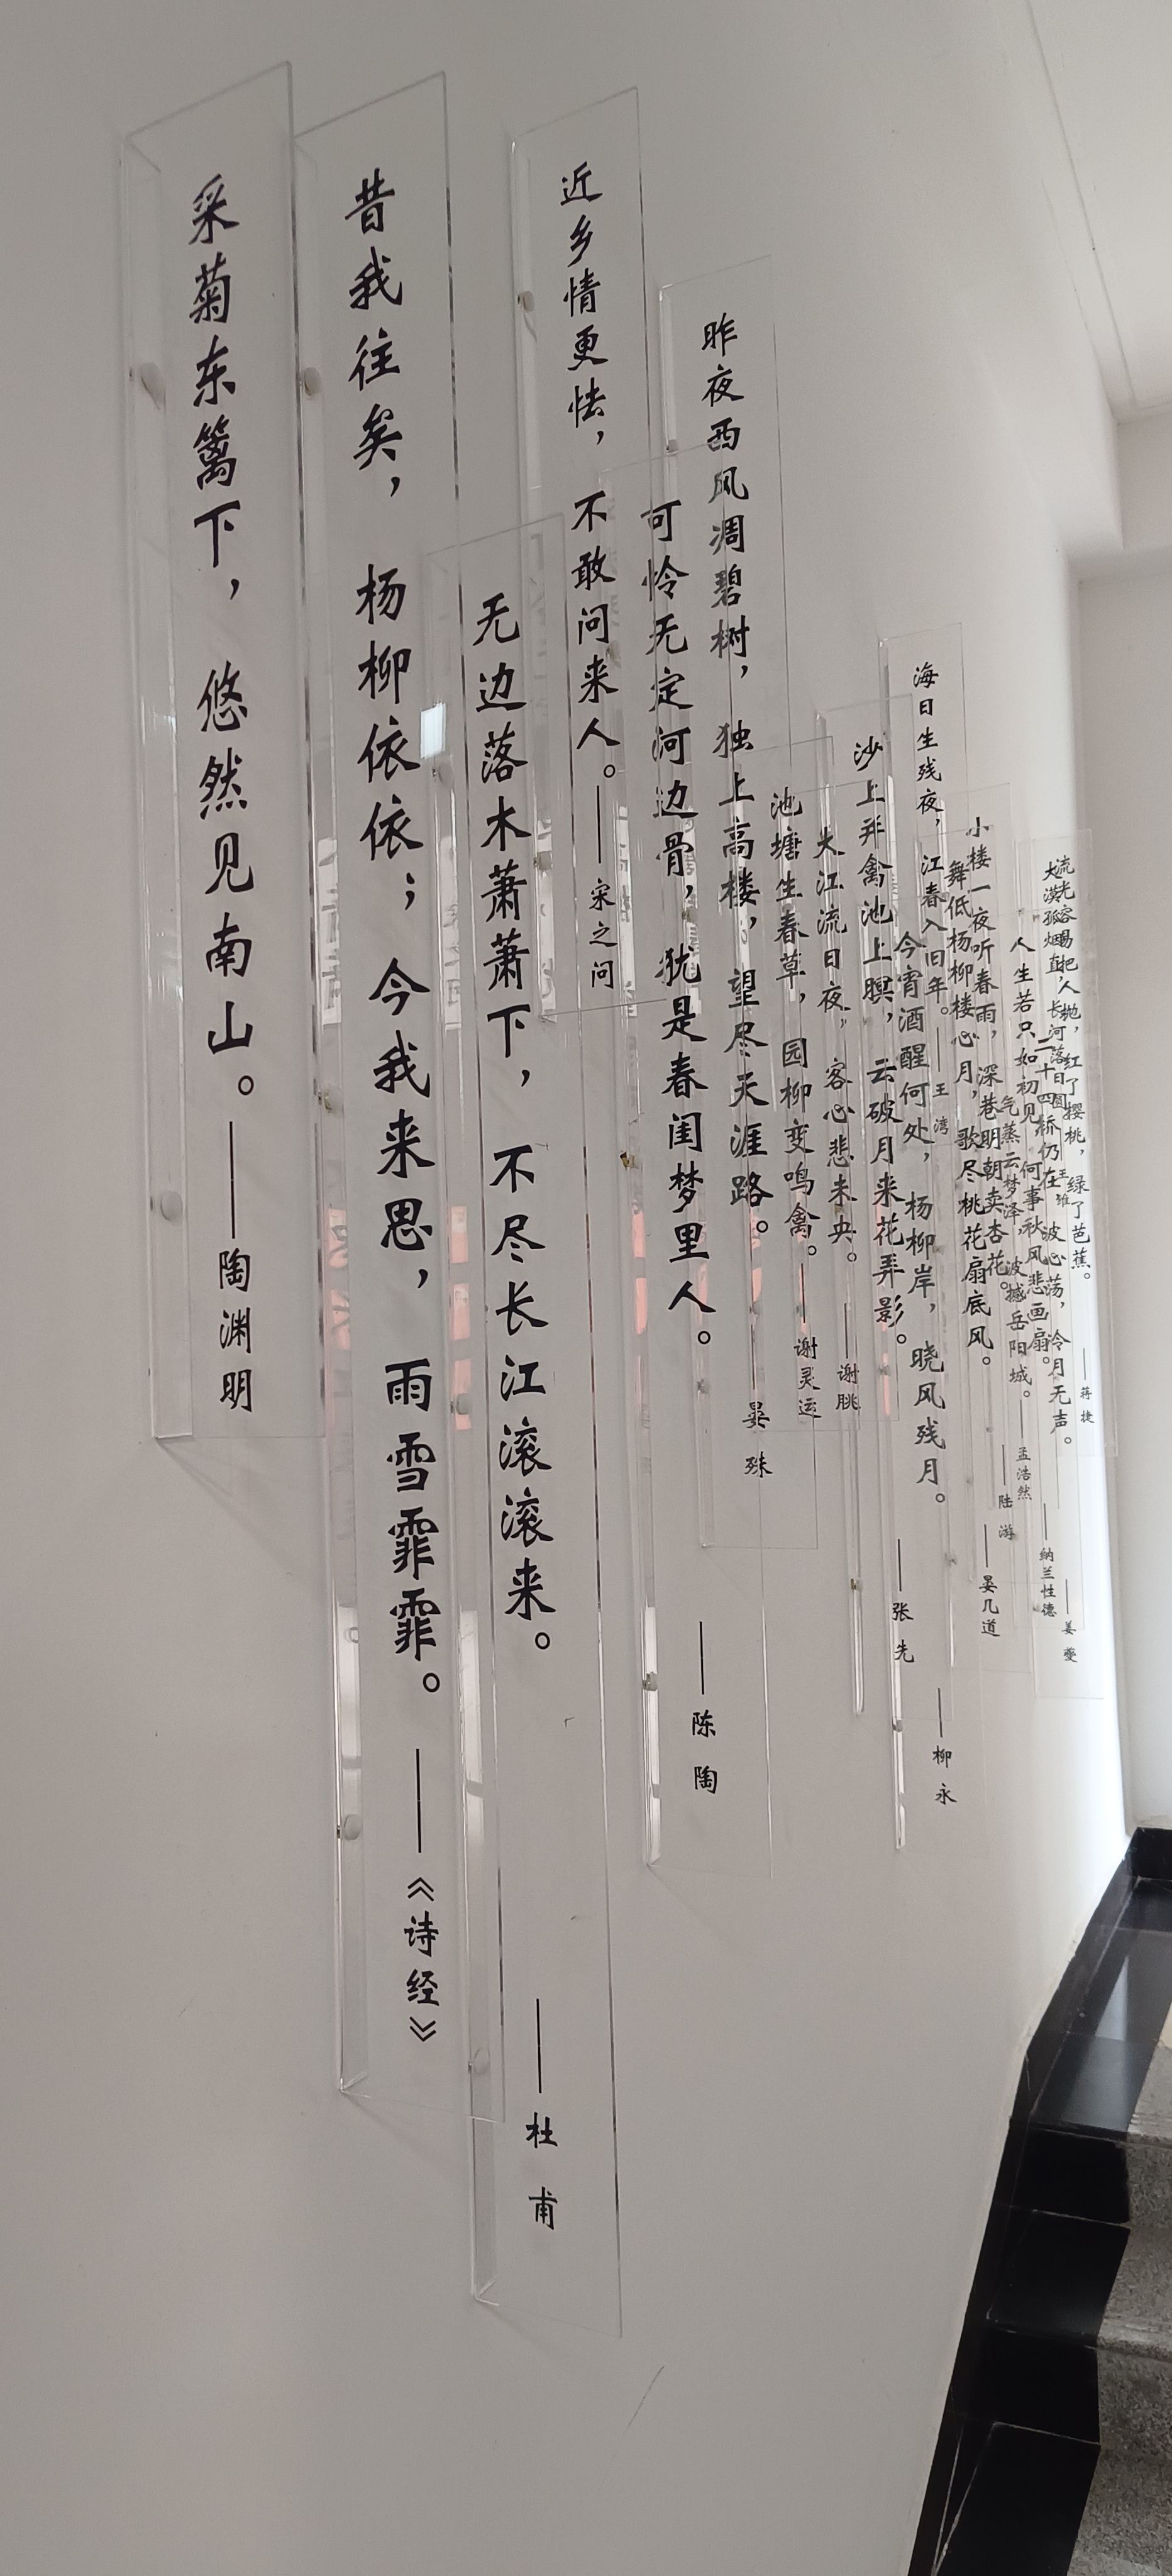 采菊东篱下，悠然见南山。——陶渊明
昔我往矣，杨柳依依；今我来思，雨雪霏霏。——《诗经》
无边落木萧萧下，不尽长江滚滚来。——杜甫
近乡情更怯，不敢问来人。——宋之问
可怜无定河边骨，犹是春闺梦里人。——陈陶
昨夜西风凋碧树，独上高楼，望尽天涯路。——晏殊
池塘生春草，园柳变鸣禽。——谢灵运
大江流日夜，客心悲未央。——谢朓
沙上并禽池上暝，云破月来花弄影。——张先
今宵酒醒何处，杨柳岸，晓风残月。——柳永
海日生残夜，江春入旧年。——王湾
舞低杨柳楼心月，歌尽桃花扇底风。——晏几道
小楼一夜听春雨，深巷明朝卖杏花。——陆游
气蒸云梦泽，波撼岳阳城。——孟浩然
人生若只如初见，何事秋风悲画扇。——纳兰性德
二十四桥仍在，波心荡，冷月无声。——姜夔
大漠孤烟直，长河落日圆。——王维
流光容易把人抛，红了樱桃，绿了芭蕉。——蒋捷